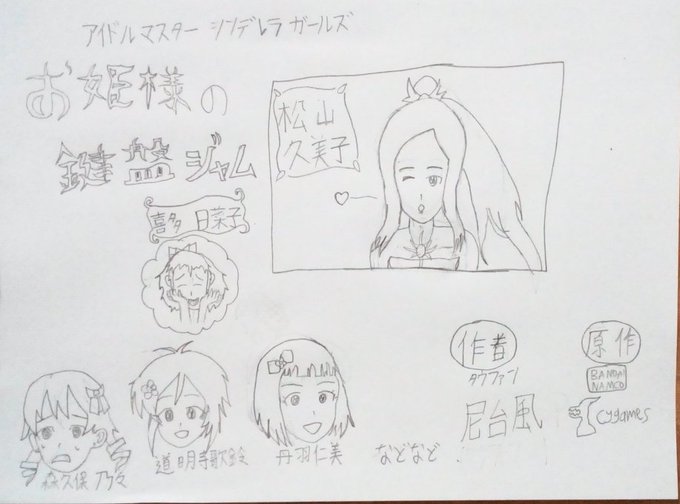 アイドルマスター シンデレラ ガールズ
お姫様の
鍵盤ジャム
松山
久美子
喜多 日菜子
森久保 乃々
道明寺歌鈴
丹羽仁美
などなど
作者
タウファン
尼台風
原作
BANDAI
NAMCO
cygames